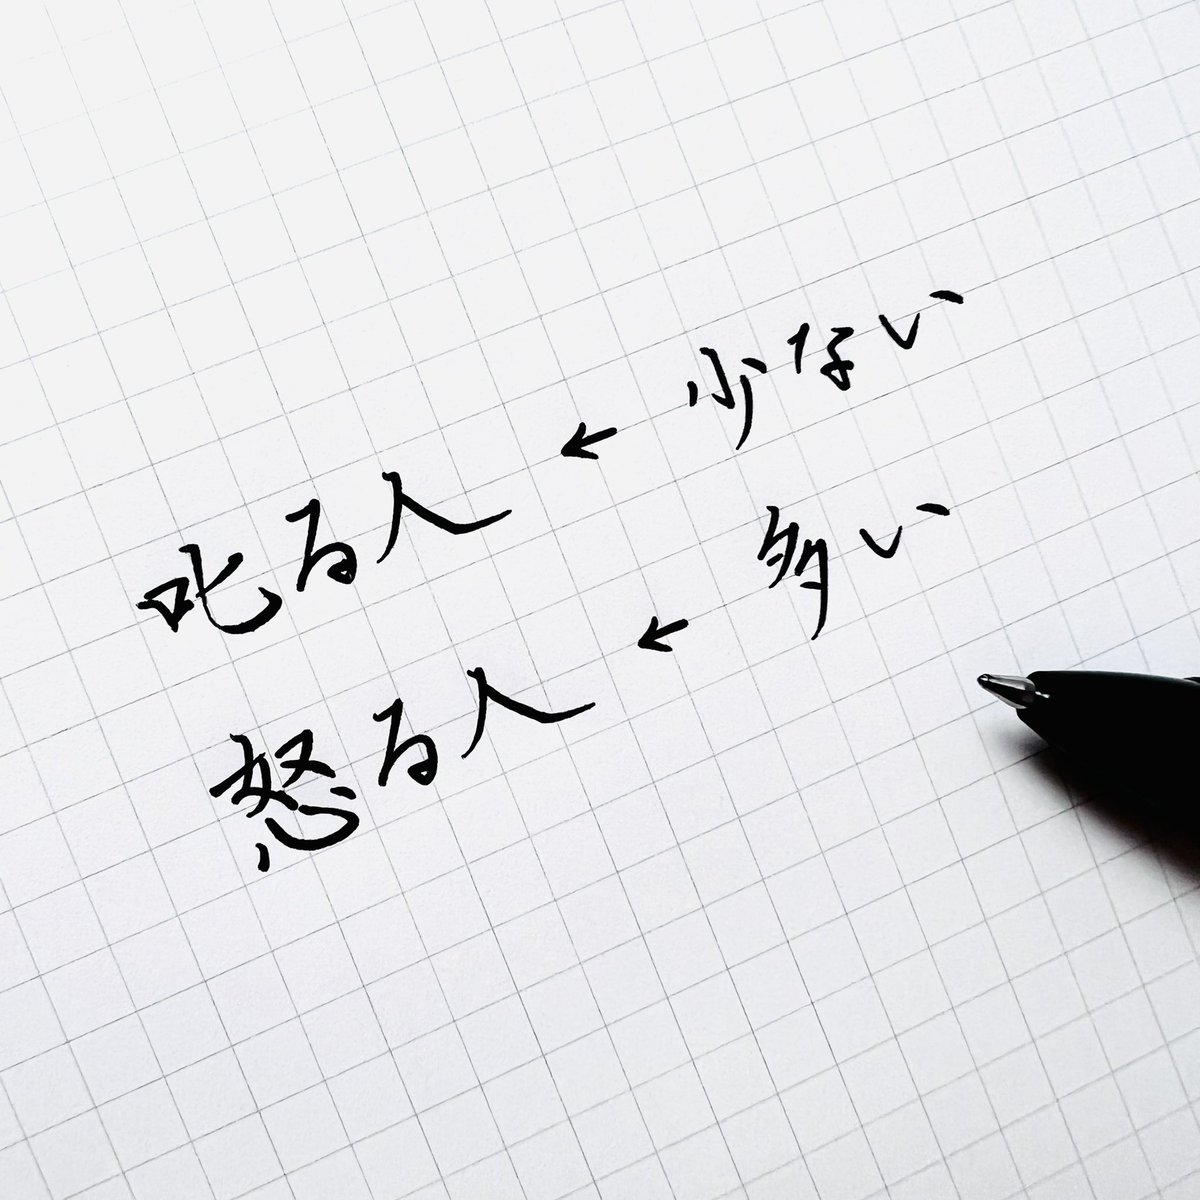 叱る人 ← 少ない
怒る人 ← 多い